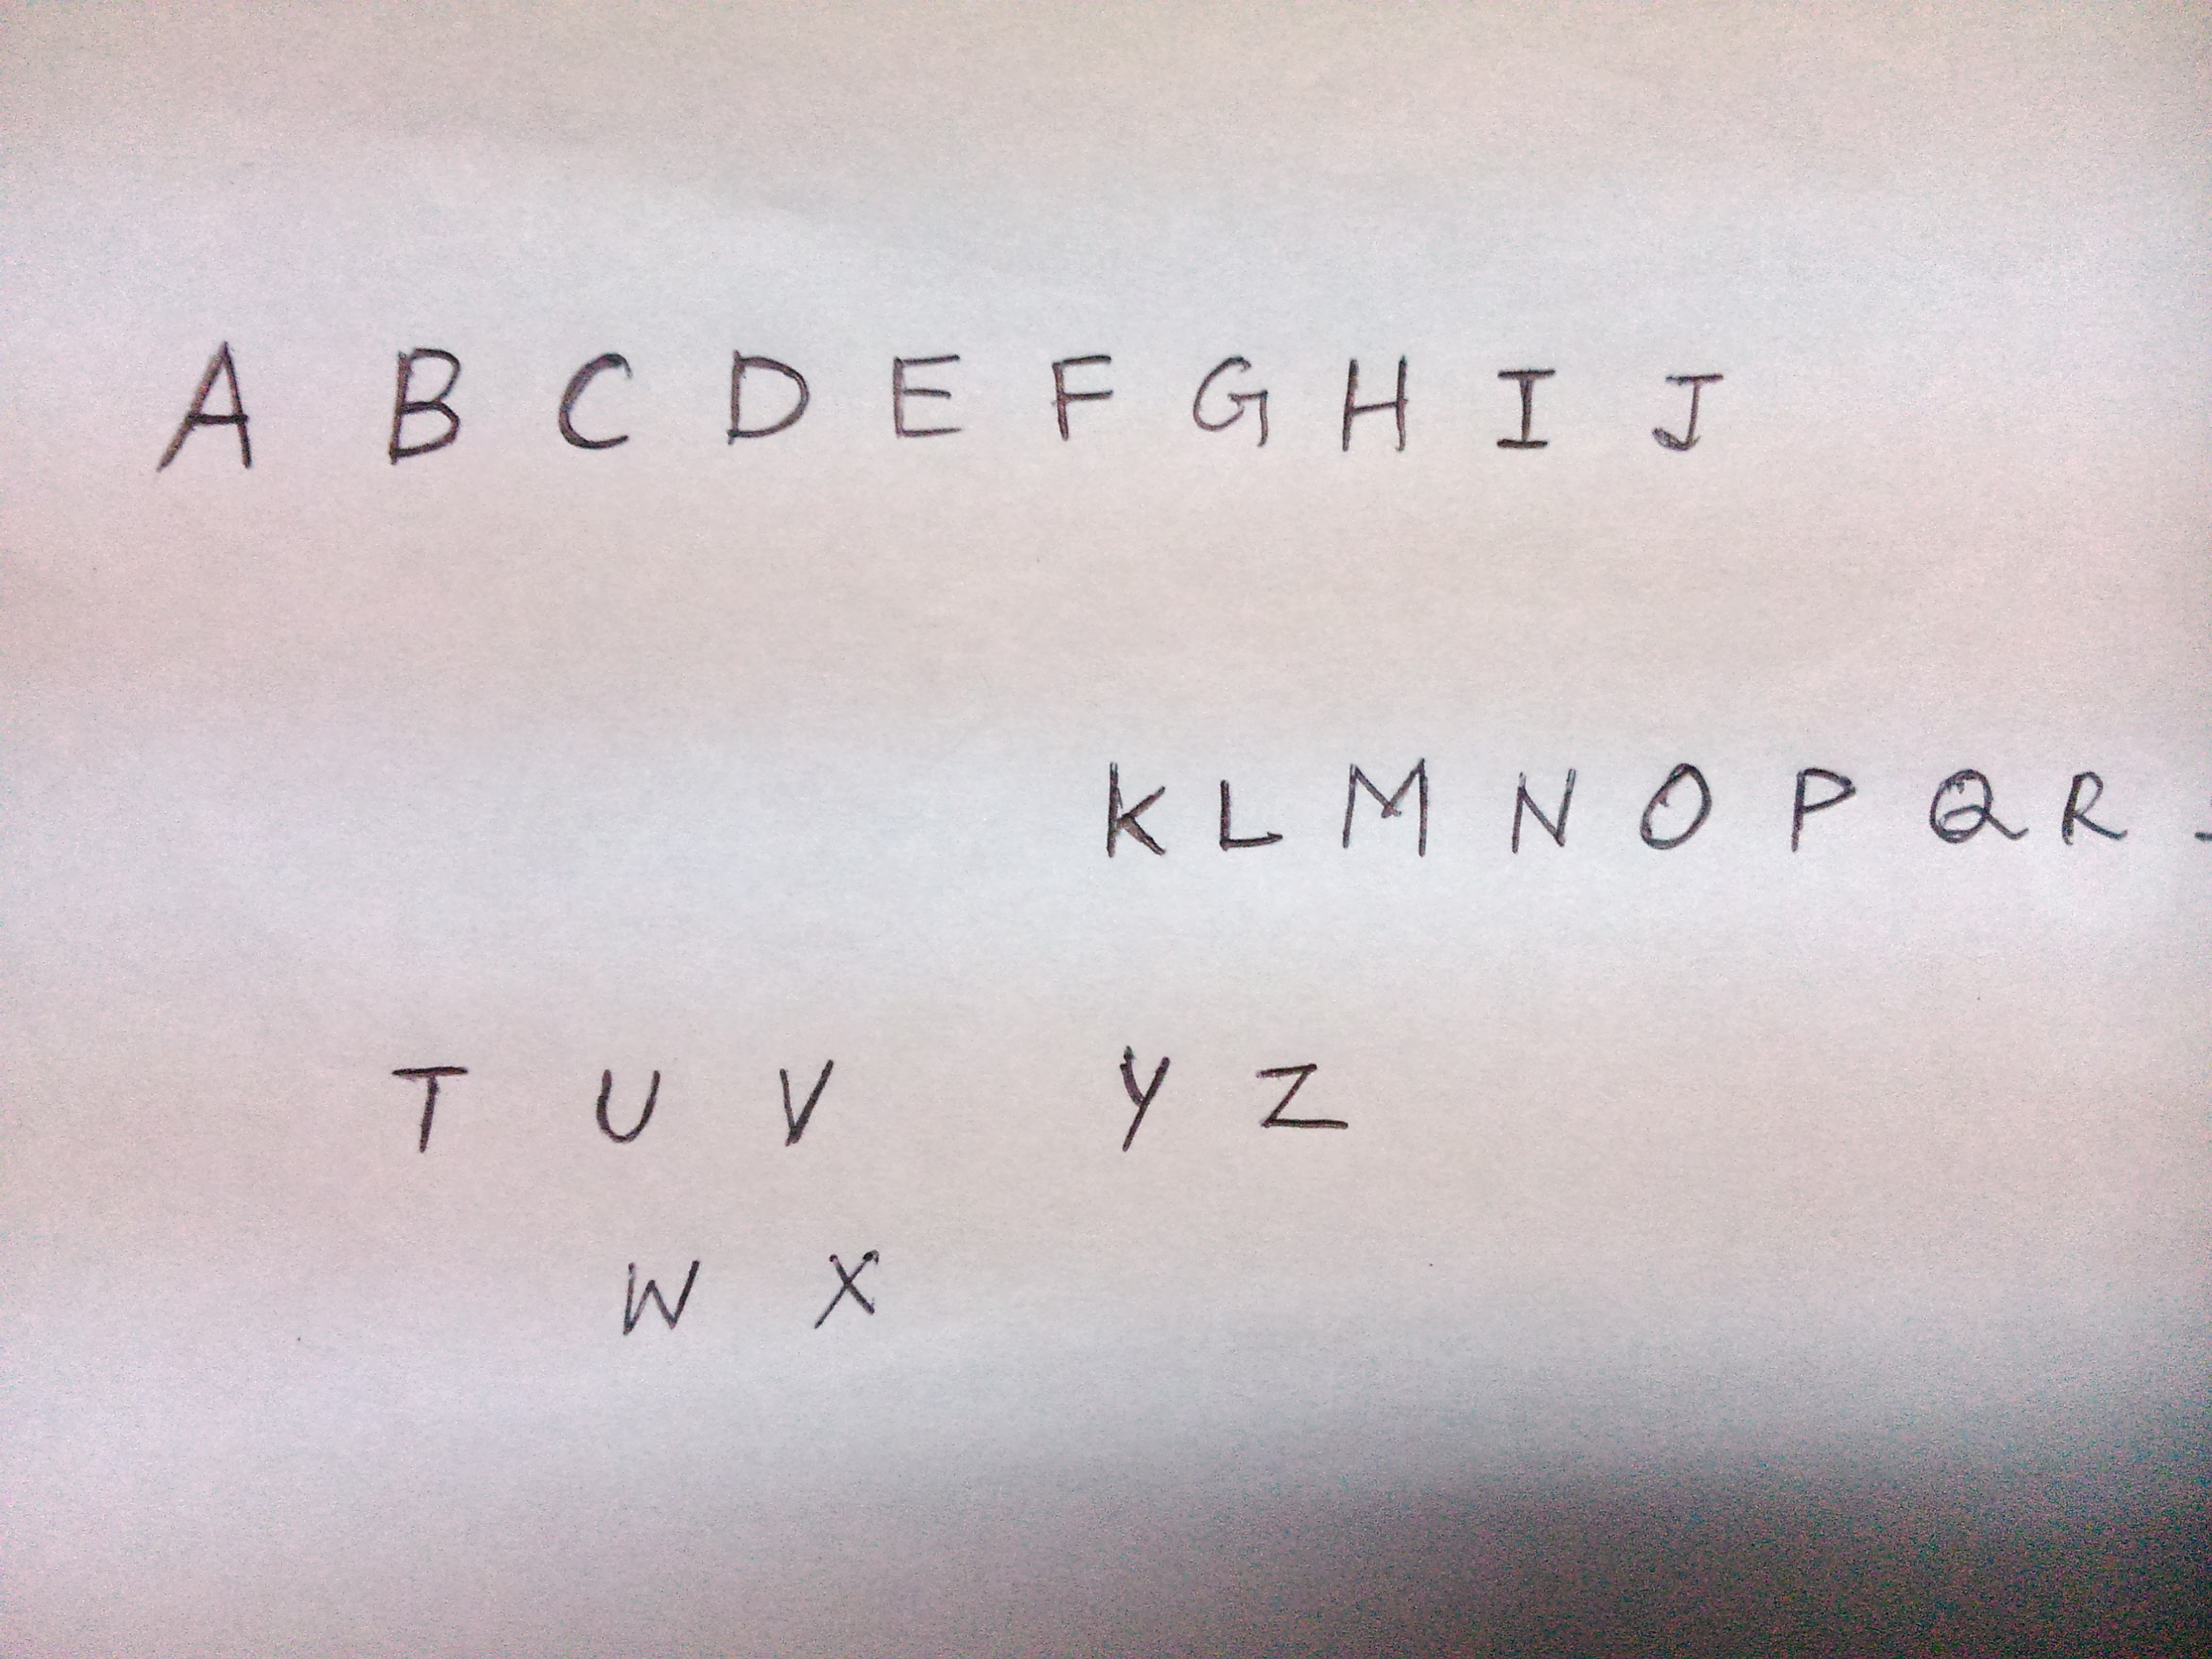 A B C D E F G H I J
K L M N O P Q R
T U V Y Z
W X